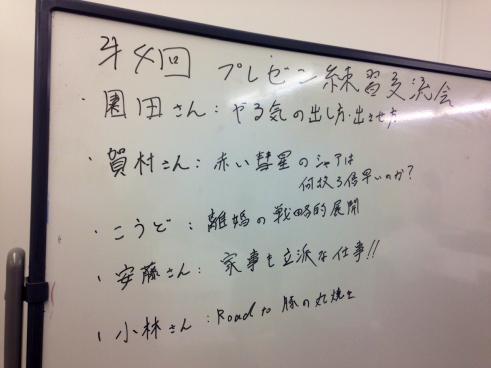 第4回 プレゼン練習交流会
・園田さん：やる気の出し方・出させ方
・賀村さん：赤い彗星のシャアは
何故3倍早いのか?
・こうど：離婚の戦略的展開
・安藤さん：家事も立派な仕事!!
・小林さん：Road to 豚の丸焼き